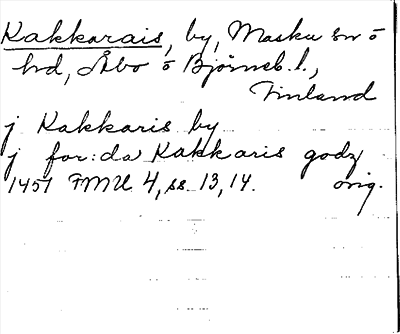 Kakkarais, by, Masku sn o
hd, Åbo o Björneb. l.,
Finland
j Kakkaris by
j for:da Kakkaris godz
1451 FMU 4, ss. 13, 14. orig.